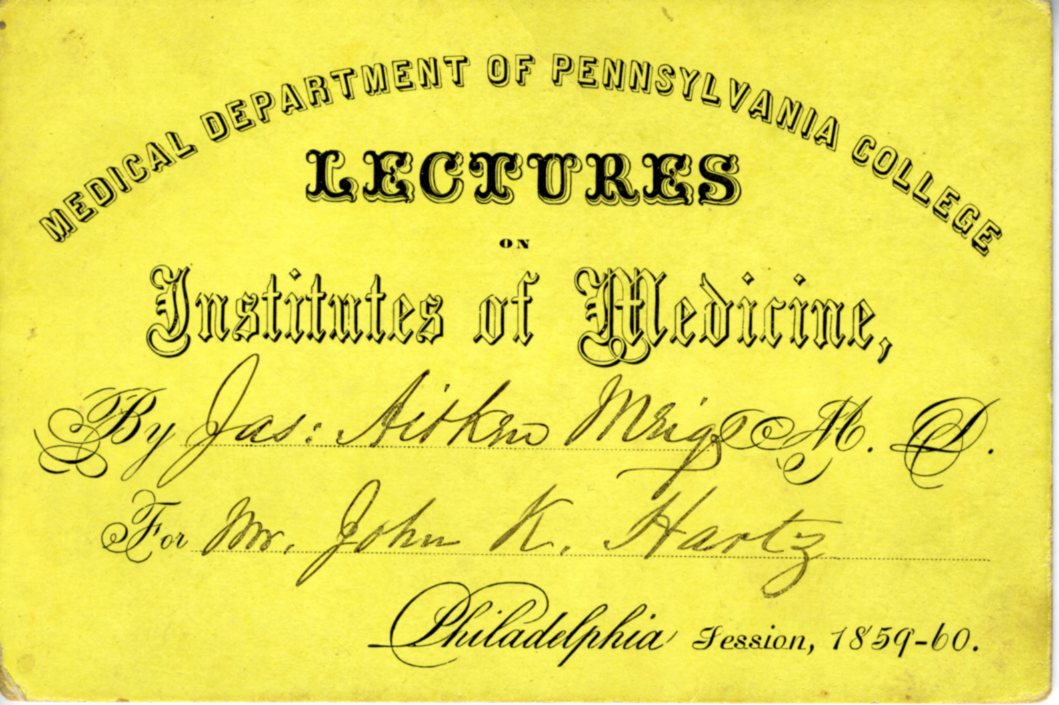 MEDICAL DEPARTMENT OF PENNSYLVANIA COLLEGE
LECTURES
ON
Institutes of Medicine,
By Jas: Aitken Meigs M. D.
For Mr. John K. Hartz
Philadelphia Session, 1859-60.